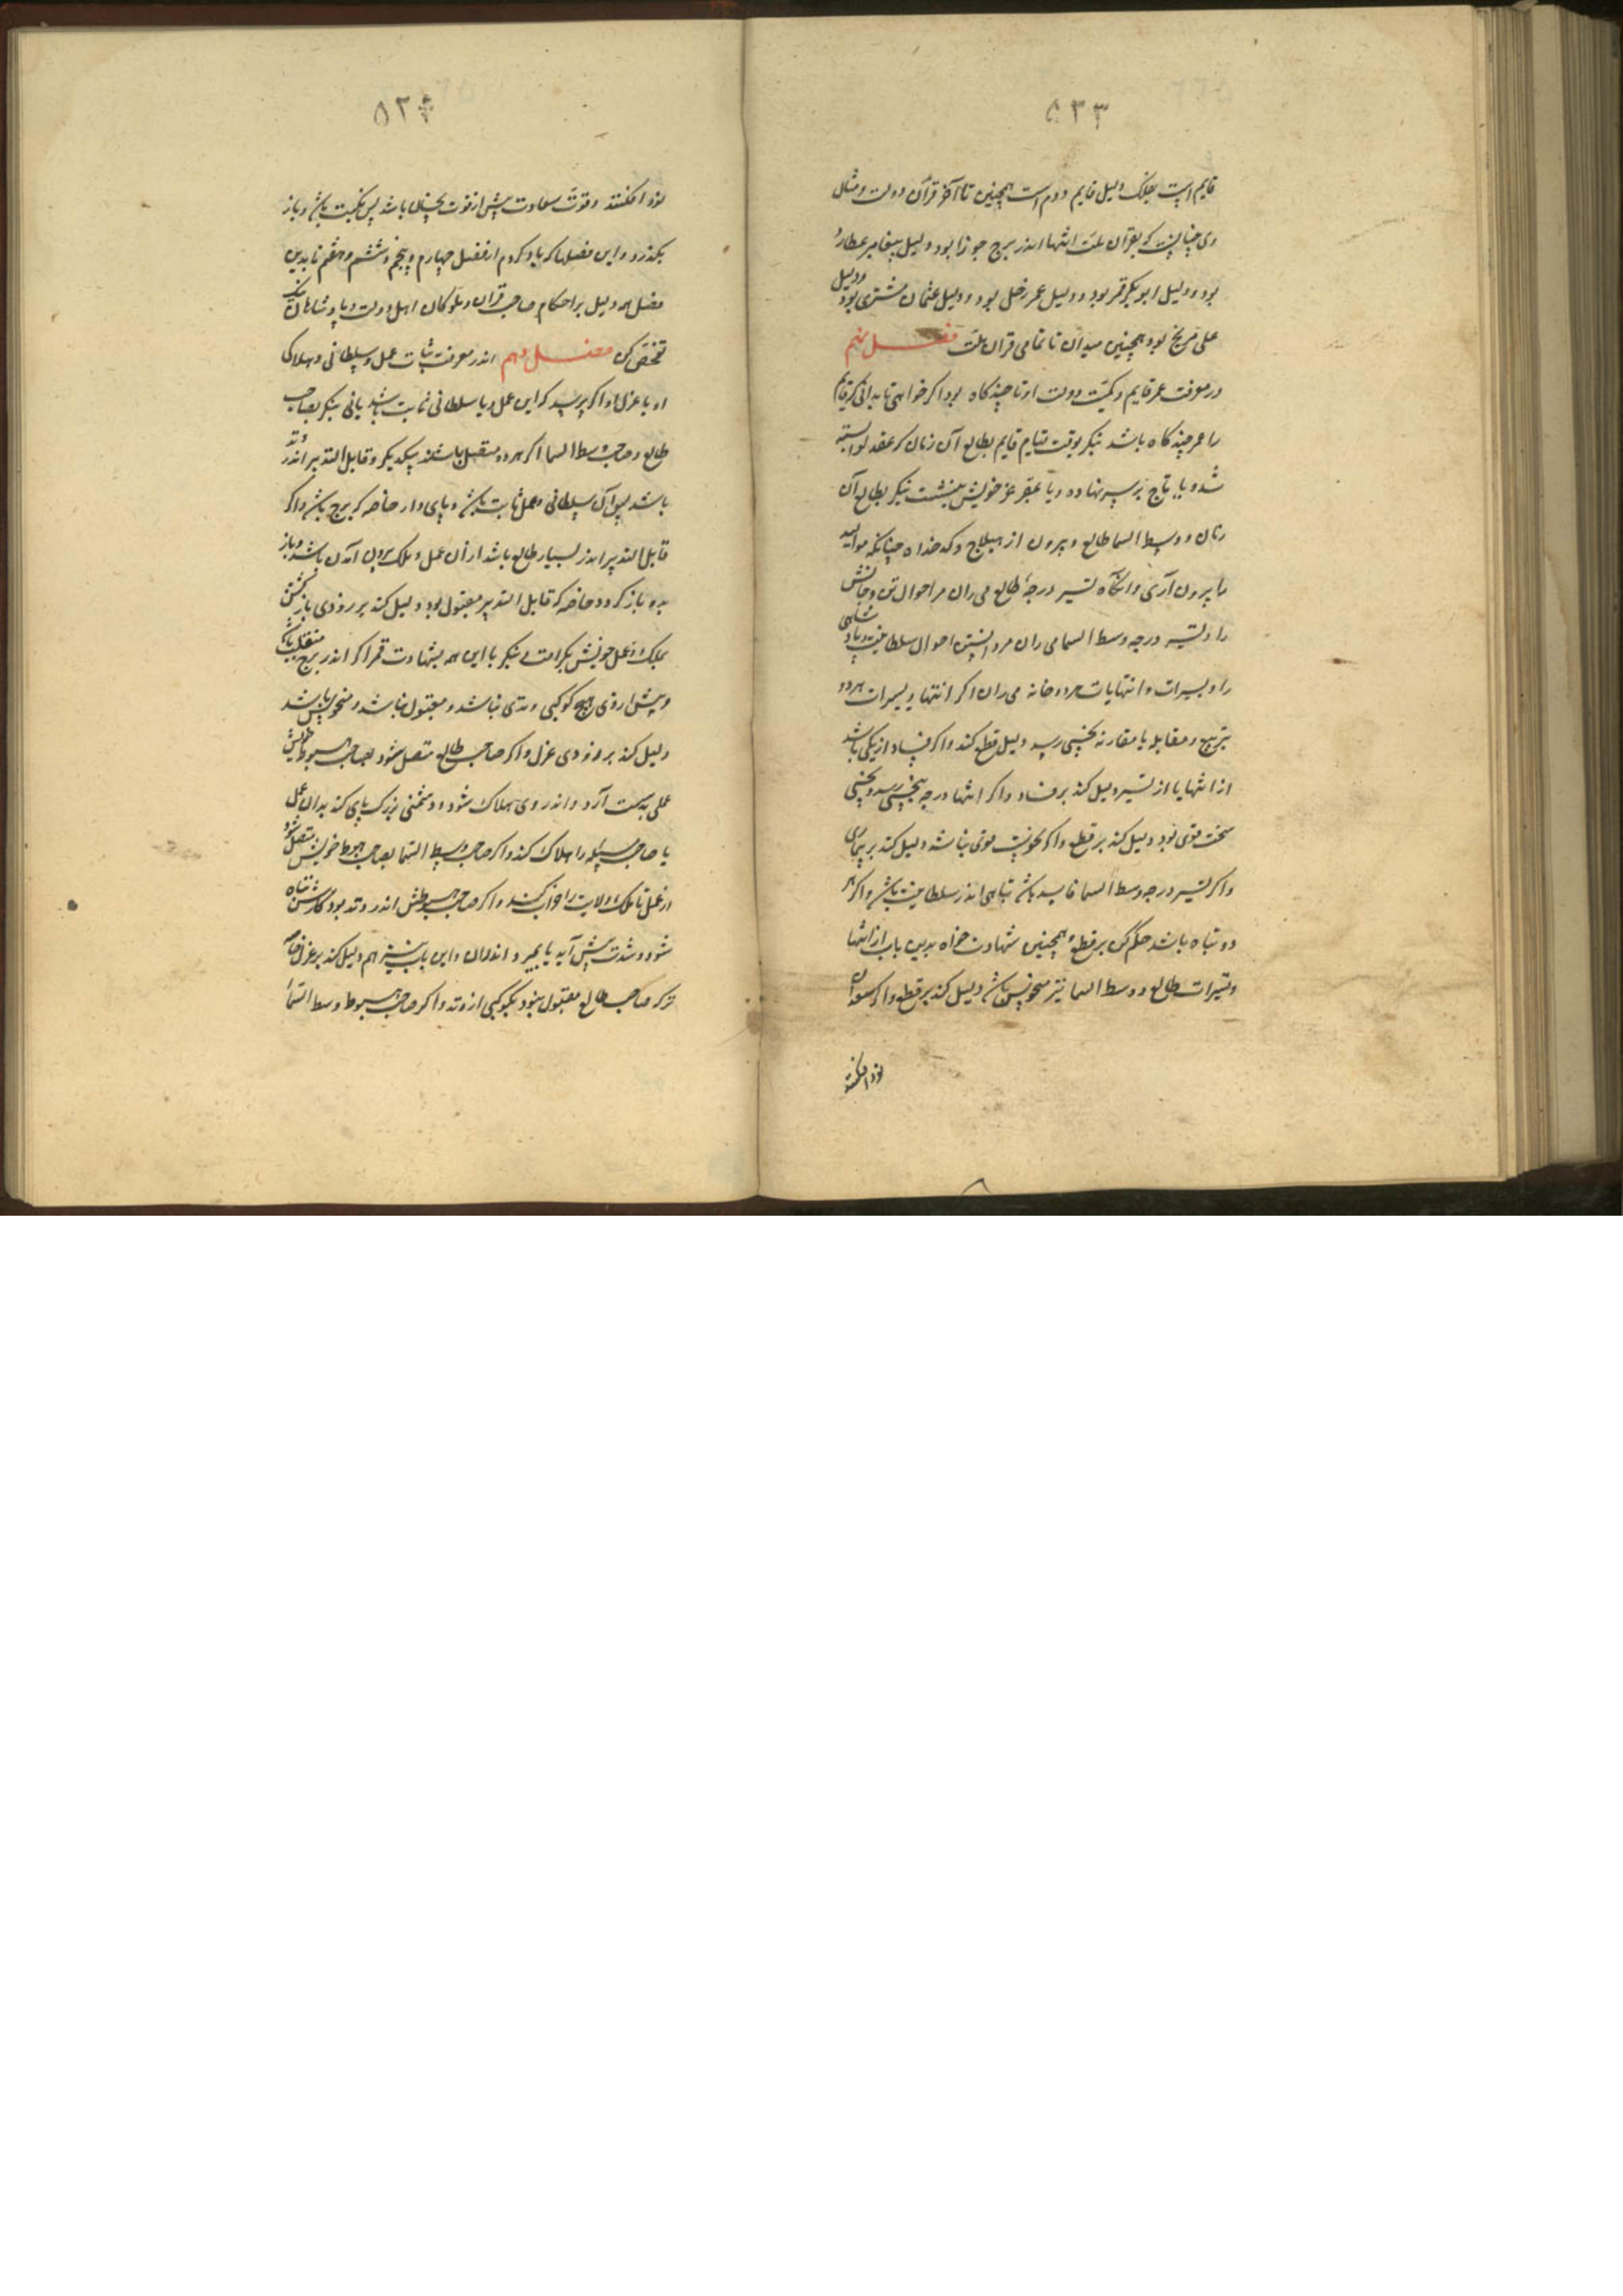 ۵۳۳
قایم است بفلک دلیل قایم دوم است همچنین تا آخر قرآن دولت و مثال
وی چنانست که بقرآن ملت انتها اندر برج جوزا بود دلیل پیغامبر عطارد
بود و دلیل ابوبکر قمر بود و دلیل عمر زحل بود و دلیل عثمان مشتری بود و دلیل
علی مریخ بود و همچنین میدان تا تمامی قران ملت فصل نهم
در معرفت عمر قایم و کمیت دولت او تا چند کاه بود اکر خواهی تا بدانی که قایم
را عمر چند کاه باشد بنکر بوقت قیام قایم بطالع آن زمان که عقد لوا بسته
شد و یا تاج بر سر نهاده و یا عز خویش بنشست بنکر بطالع آن
زمان و وسط السما طالع و بیرون از هیلاج و کدخداه چنانکه موالید
را بیرون آری و آنکاه تسیر درجهٔ طالع می ران مر احوال تن و جانش
را و تسیر درجه وسط السما می ران مر دانستن احوال سلطانیت و پادشاهی
را و تسیرات و انتهایات هر دو خانه می ران اکر انتها و تسیرات هر دو
بتربیع و مقابله یا مقارنه بنحسی رسد دلیل قطع کند و اکر فساد از یکی باشد
از انتها یا از تسیر دلیل کند بر فساد و اکر انتها درجه بنحسی رسد و نحسی
سخت قوی بود دلیل کند بر قطع و اکر نحوست قوی نباشد دلیل کند بر بیماری
و اکر تسیر درجه وسط السما فاسد باشد تباهی اندر سلطانیت باشد و اکر هر
دو تباه باشد حکم کن بر قطع و همچنین شهادت خواه بدین باب از انتها
و تسیرات طالع و وسط السما نیز منحوس باشد دلیل کند بر قطع و اکر سعدان
نور افکنند
۵۳۴
نور افکنند و قوت سعادت بیش از قوت نحسان باشد پس نکبت باشد و باز
بکذرد و این فصلها که یاد کردم از فصل چهارم و پنجم و ششم و هفتم تا بدین
فصل همه دلیل بر احکام صاحب قران و ملوکان اهل دولت و پادشاهان نیک
تفحص کن فصل دهم اندر معرفت ثبات عمل و سلطانی و هلاکی
او یا عزل او اکر پرسد که این عمل و یا سلطانی ثابت باشد یا نی بنکر بصاحب
طالع و صاحب وسط السما اکر هر دو متصل باشند بیکدیکر و قابل التدبیر اندر وتد
باشد پس آن سلطانی و عمل ثابت باشد و پای دار خاصه که برج باشد و اکر
قابل التدبیر اندر یسار طالع باشد از آن عمل و ملک بیرون آمدن باشد و باز
بدو باز کردد خاصه که قابل التدبیر مقبول بود دلیل کند بر زودی باز کشتن
بملک و عمل خویش بکرامت بنکر با این همه بشهادت قمر اکر اندر برج منقلب باشد
و پیش از وی هیچ کوکبی وتدی نباشد و مقبول نباشد و منحوس باشد
دلیل کند بر زودی عزل و اکر صاحب طالع متصل شود بصاحب هبوط خویش
عملی بدست آرد و اندر وی هلاک شود و دشمنی بزرک پای کند بدان عمل
یا صاحب مسئله را هلاک کند و اکر صاحب وسط السما بصاحب هبوط خویش متصل شود
از عمل تا ملک و ولایت را خراب کنند و اکر صاحب هبوطش اندر وتد بود کارش تباه
شود و شدت پیش آید یا بمیرد اندران و این باب نیز هم دلیل کند بر عزل خاصه
ترکه صاحب طالع مقبول نبود بکوکبی از وتد و اکر صاحب هبوط وسط السماء